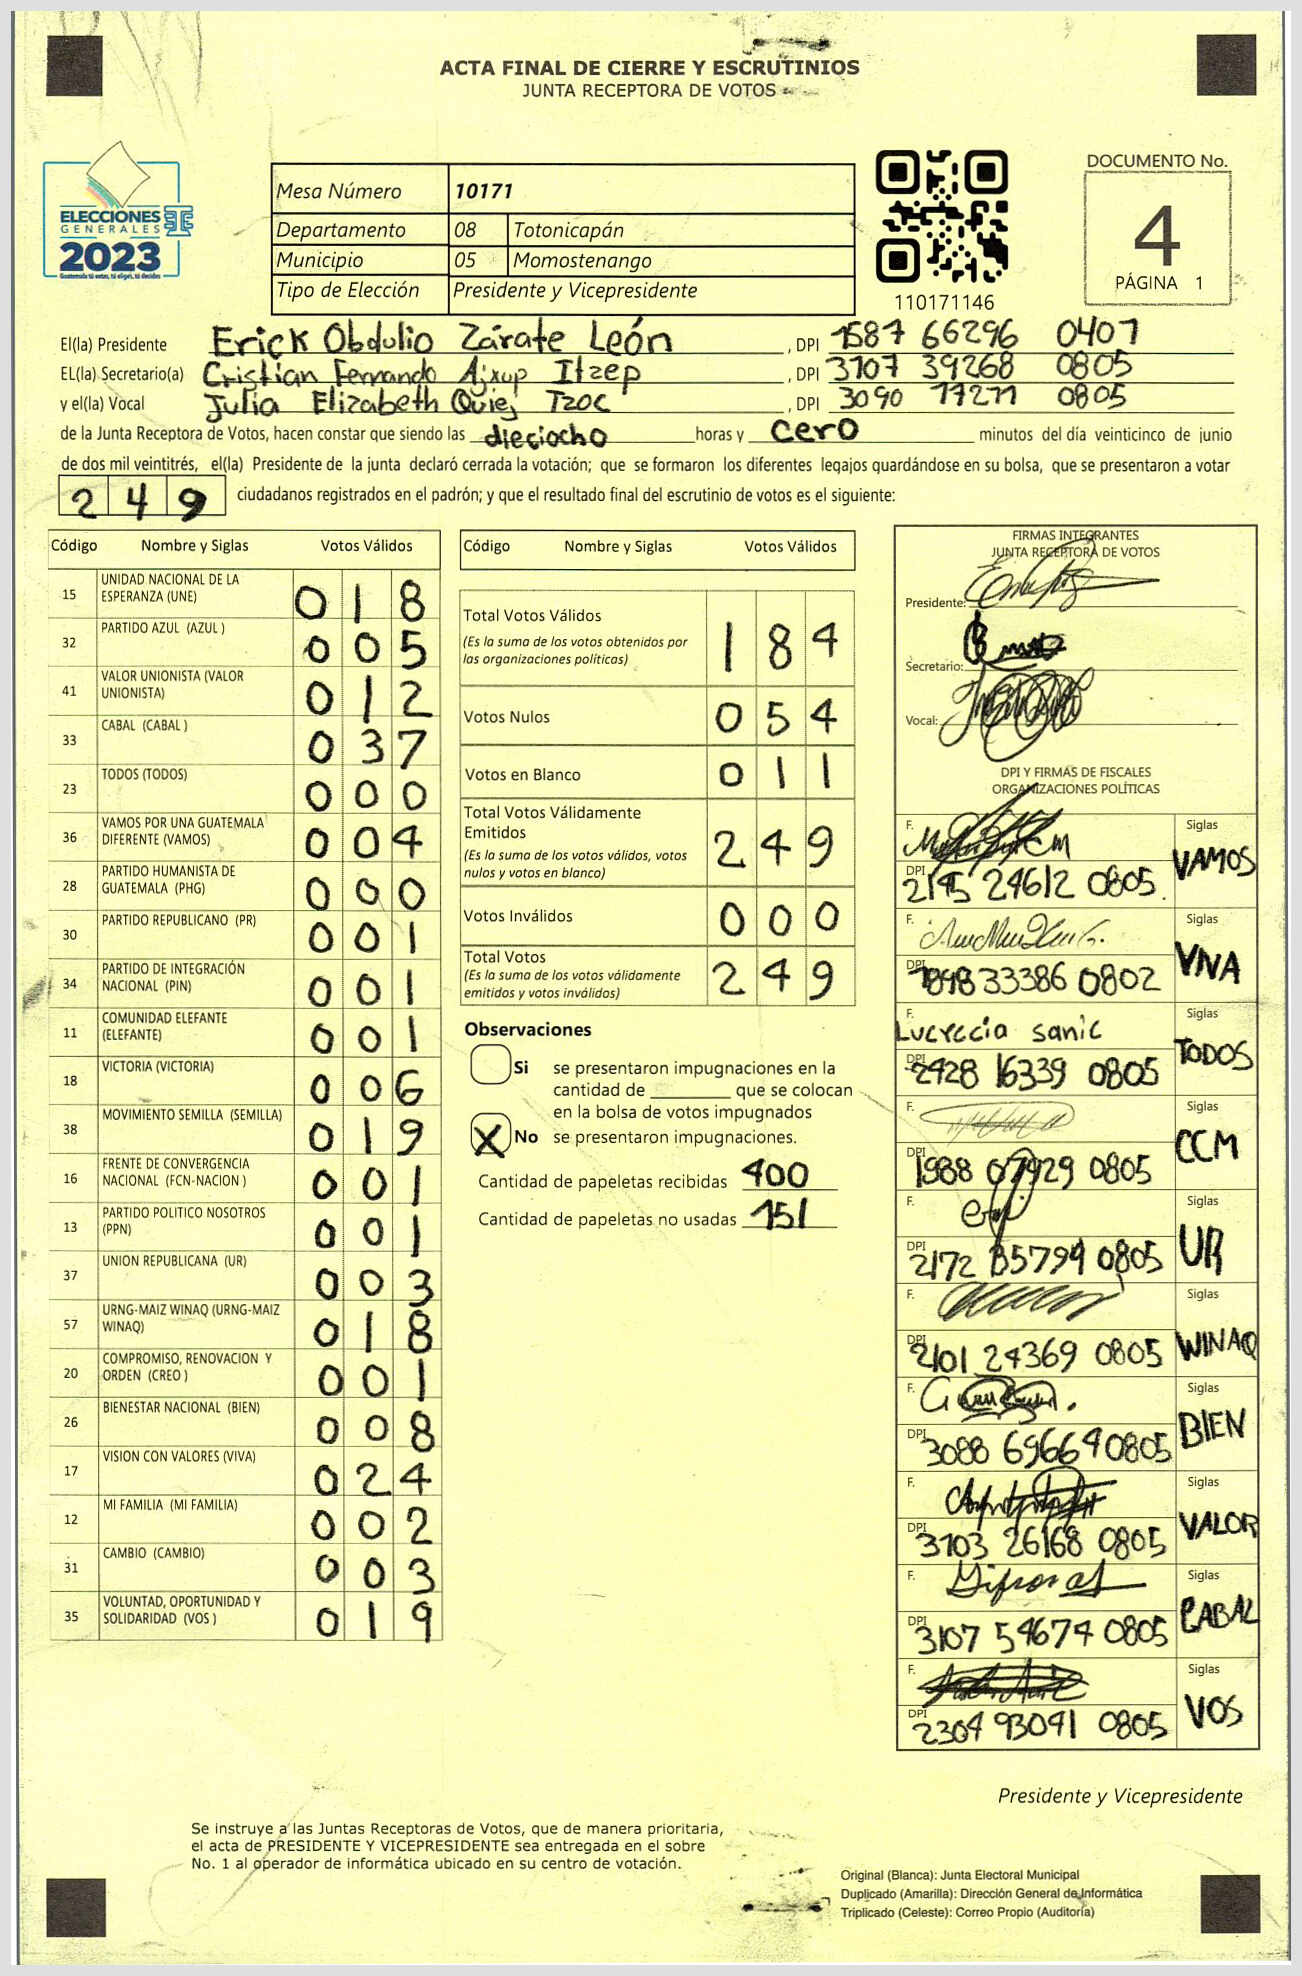 ACTA FINAL DE CIERRE Y ESCRUTINIOS
JUNTA RECEPTORA DE VOTOS
ELECCIONES
GENERALES
2023
Mesa Número 10171
Departamento 08 Totonicapán
Municipio 05 Momostenango
Tipo de Elección Presidente y Vicepresidente
110171146
DOCUMENTO No.
4
PÁGINA 1
El(la) Presidente Erick Obdulio Zárate León, DPI 1587 66296 0407
EL(la) Secretario(a) Cristian Fernando Ajxup Itzep, DPI 3107 39268 0805
y el(la) Vocal Julia Elizabeth Quiej Tzoc, DPI 3090 77277 0805
de la Junta Receptora de Votos, hacen constar que siendo las dieciocho horas y cero minutos del día veinticinco de junio
de dos mil veintitrés, el(la) Presidente de la junta declaró cerrada la votación; que se formaron los diferentes legajos guardándose en su bolsa, que se presentaron a votar
249 ciudadanos registrados en el padrón; y que el resultado final del escrutinio de votos es el siguiente:
Código Nombre y Siglas Votos Válidos
15 UNIDAD NACIONAL DE LA ESPERANZA (UNE) 018
32 PARTIDO AZUL (AZUL ) 005
41 VALOR UNIONISTA (VALOR UNIONISTA) 012
33 CABAL (CABAL ) 037
23 TODOS (TODOS) 000
36 VAMOS POR UNA GUATEMALA DIFERENTE (VAMOS) 004
28 PARTIDO HUMANISTA DE GUATEMALA (PHG) 000
30 PARTIDO REPUBLICANO (PR) 001
34 PARTIDO DE INTEGRACIÓN NACIONAL (PIN) 001
11 COMUNIDAD ELEFANTE (ELEFANTE) 001
18 VICTORIA (VICTORIA) 006
38 MOVIMIENTO SEMILLA (SEMILLA) 019
16 FRENTE DE CONVERGENCIA NACIONAL (FCN-NACION ) 001
13 PARTIDO POLITICO NOSOTROS (PPN) 001
37 UNION REPUBLICANA (UR) 003
57 URNG-MAIZ WINAQ (URNG-MAIZ WINAQ) 018
20 COMPROMISO, RENOVACION Y ORDEN (CREO ) 001
26 BIENESTAR NACIONAL (BIEN) 008
17 VISION CON VALORES (VIVA) 024
12 MI FAMILIA (MI FAMILIA) 002
31 CAMBIO (CAMBIO) 003
35 VOLUNTAD, OPORTUNIDAD Y SOLIDARIDAD (VOS ) 019
Código Nombre y Siglas Votos Válidos
Total Votos Válidos 184
(Es la suma de los votos obtenidos por
las organizaciones políticas)
Votos Nulos 054
Votos en Blanco 011
Total Votos Válidamente
Emitidos 249
(Es la suma de los votos válidos, votos
nulos y votos en blanco)
Votos Inválidos 000
Total Votos 249
(Es la suma de los votos válidamente
emitidos y votos inválidos)
Observaciones
Si se presentaron impugnaciones en la
cantidad de ________ que se colocan
en la bolsa de votos impugnados
X No se presentaron impugnaciones.
Cantidad de papeletas recibidas 400
Cantidad de papeletas no usadas 151
FIRMAS INTEGRANTES
JUNTA RECEPTORA DE VOTOS
Presidente:
Secretario:
Vocal:
DPI Y FIRMAS DE FISCALES
ORGANIZACIONES POLÍTICAS
F. Siglas VAMOS
DPI 2195 24612 0805
F. Siglas VIVA
DPI 1898 33386 0802
F. Lucreccia Sanic Siglas TODOS
DPI 2428 16339 0805
F. Siglas CCM
DPI 1988 07929 0805
F. Siglas UR
DPI 2172 85799 0805
F. Siglas WINAQ
DPI 2101 24369 0805
F. Siglas BIEN
DPI 3088 69664 0805
F. Siglas VALOR
DPI 3103 26168 0805
F. Siglas CABAL
DPI 3107 54674 0805
F. Siglas VOS
DPI 2304 93041 0805
Presidente y Vicepresidente
Se instruye a las Juntas Receptoras de Votos, que de manera prioritaria,
el acta de PRESIDENTE Y VICEPRESIDENTE sea entregada en el sobre
No. 1 al operador de informática ubicado en su centro de votación.
Original (Blanca): Junta Electoral Municipal
Duplicado (Amarilla): Dirección General de Informática
Triplicado (Celeste): Correo Propio (Auditoría)